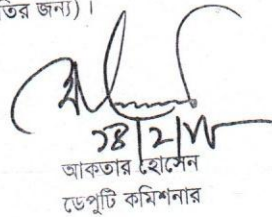 তির জন্য) ।
আকতার হোসেন
ডেপুটি কমিশনার